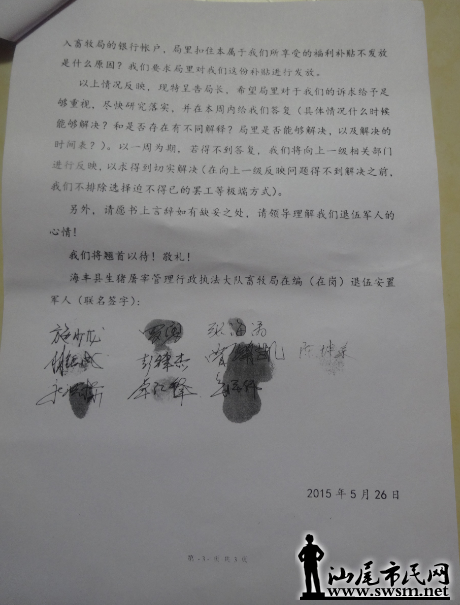 入畜牧局的银行帐户，局里扣住本属于我们所享受的福利补贴不发放
是什么原因？我们要求局里对我们这份补贴进行发放。
以上情况反映，现特呈告局长，希望局里对于我们的诉求给予足
够重视，尽快研究落实，并在本周内给我们答复（具体情况什么时候
能够解决？和是否存在有不同解释？局里是否能够解决，以及解决的
时间表？）。以一周为期，若得不到答复，我们将向上一级相关部门
进行反映，以求得到切实解决（在向上一级反映问题得不到解决之前，
我们不排除选择迫不得已的罢工等极端方式）。
另外，请愿书上言辞如有缺妥之处，请领导理解我们退伍军人的
心情！
我们将翘首以待！敬礼！
海丰县生猪屠宰管理行政执法大队畜牧局在编（在岗）退伍安置
军人（联名签字）：
彭锋杰
2015 年 5 月 26 日
汕尾市民网
www.swsm.net